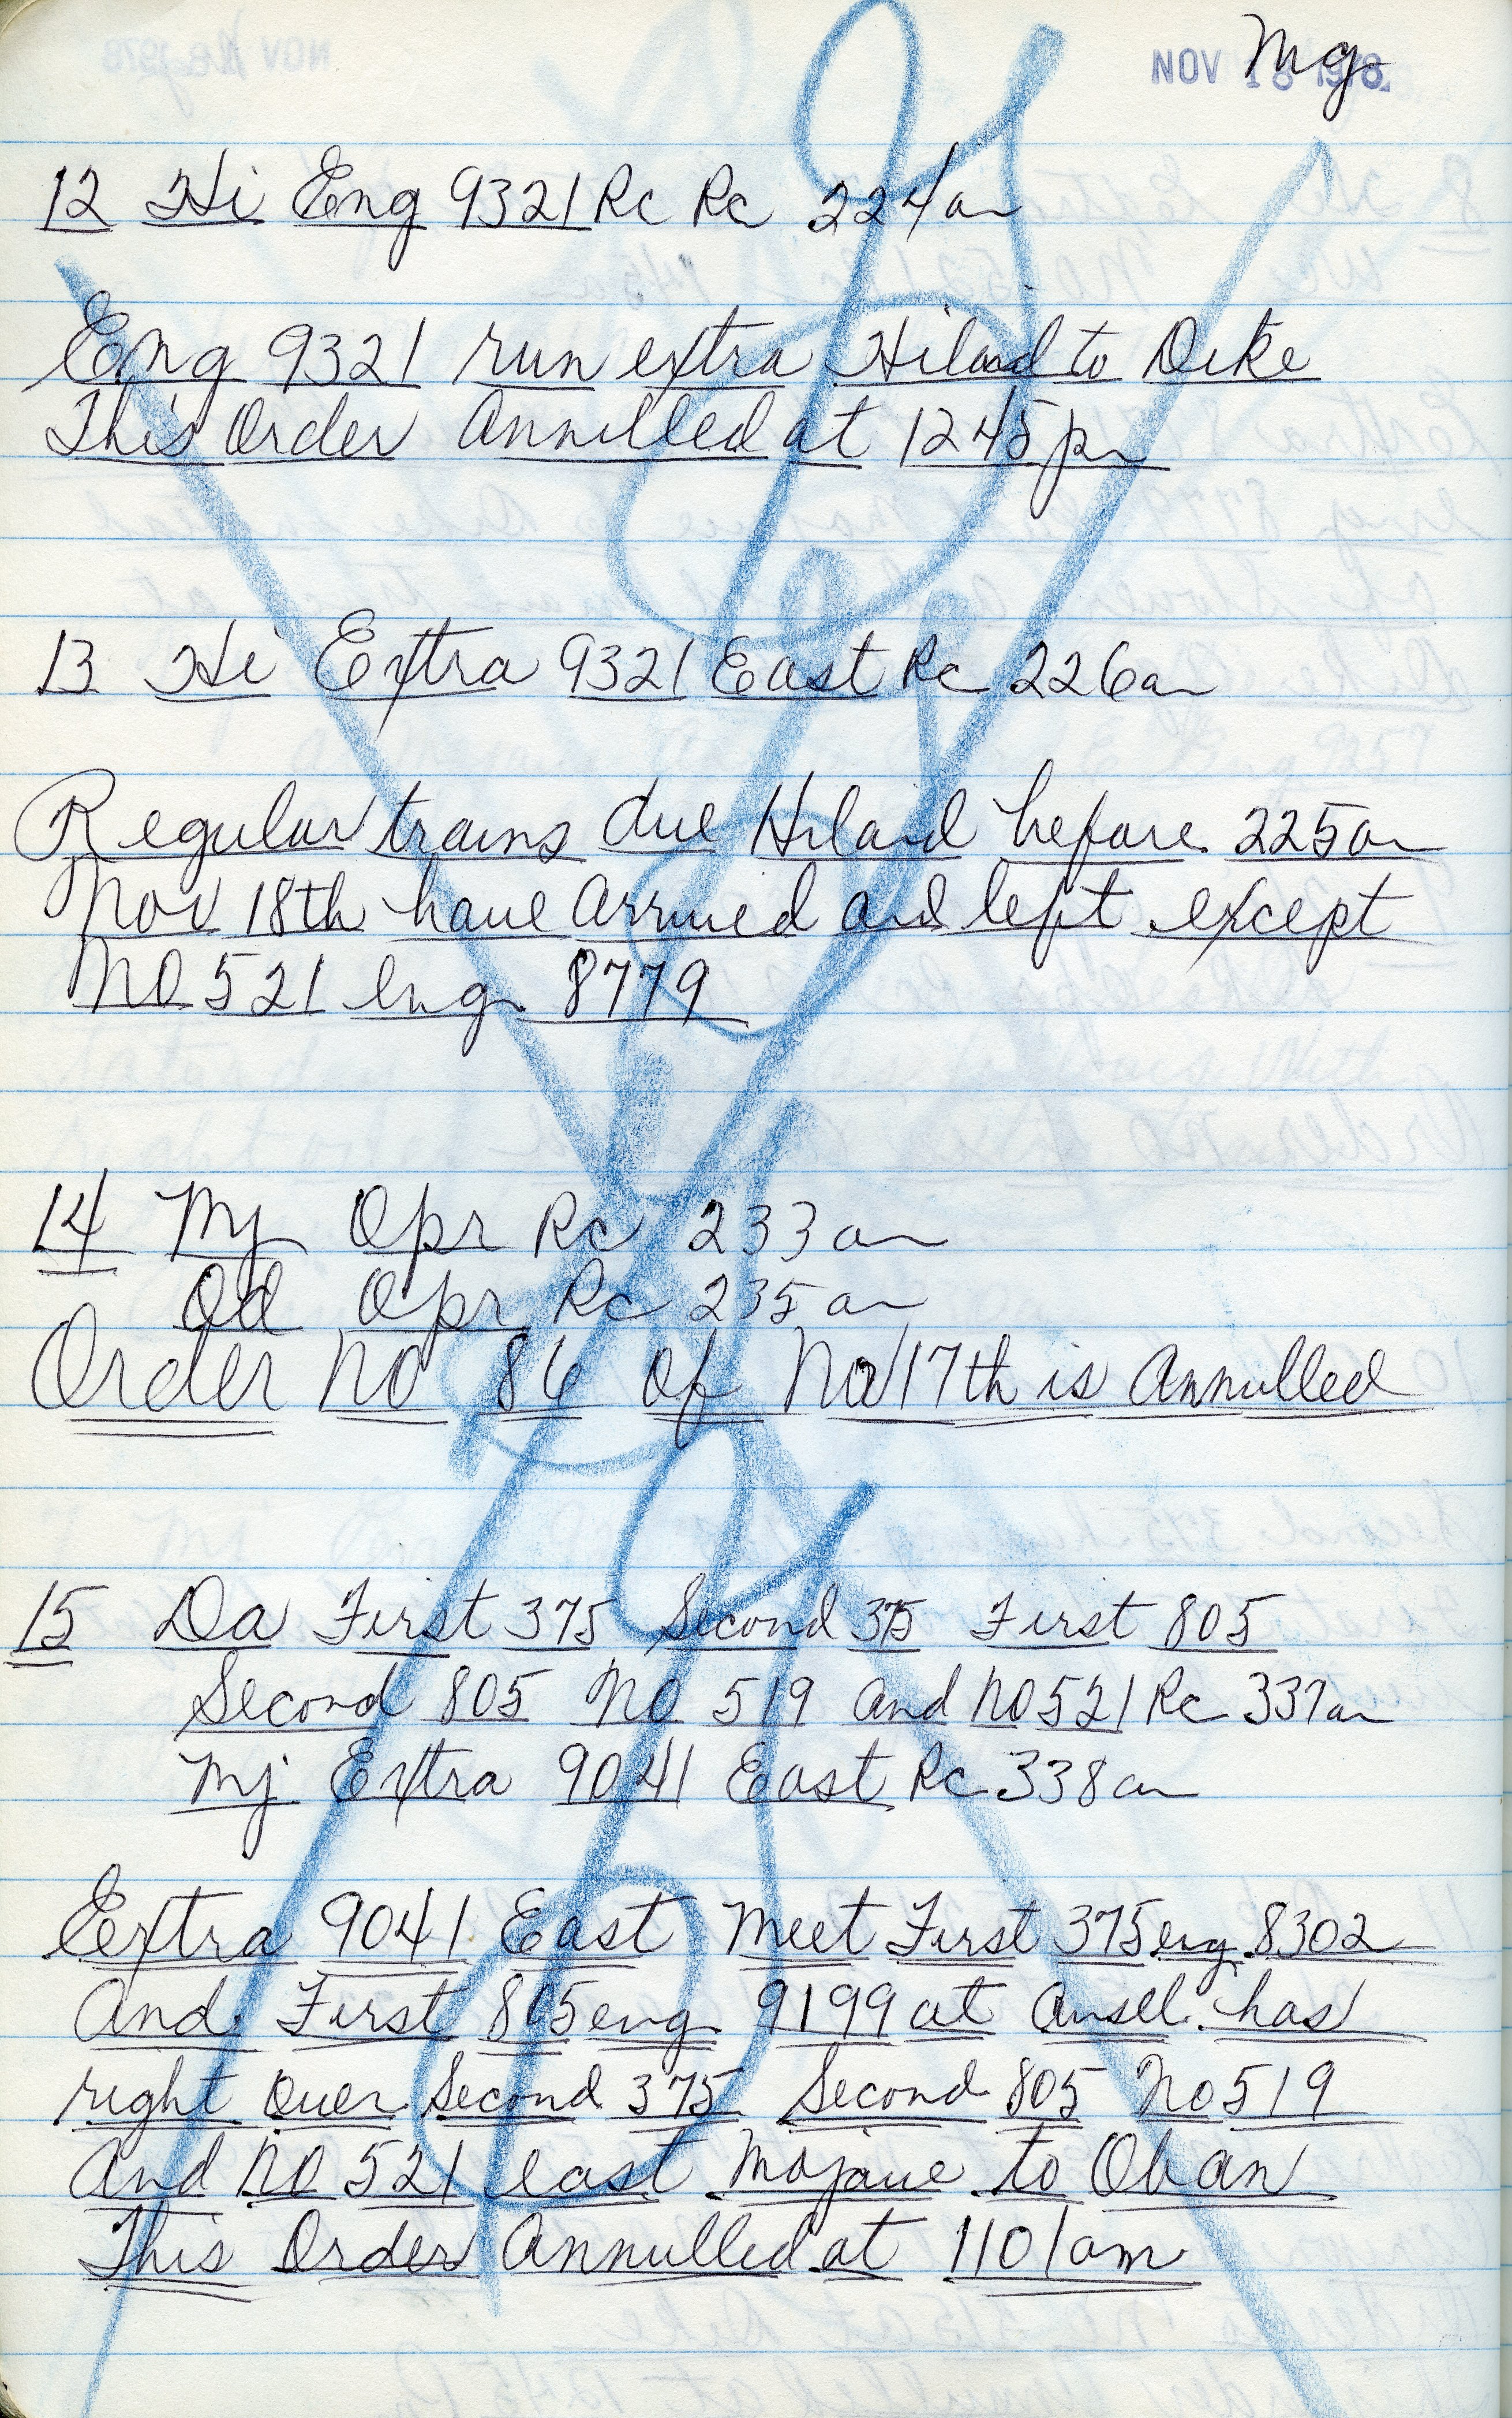 NOV 18 1978 Mg
12 Hi Eng 9321 Rc Rc 224am
Eng 9321 run extra Hiland to Dike
This Order Annulled at 1245pm
13 Hi Extra 9321 East Rc 226am
Regular trains due Hiland before 225am
Nov 18th have arrived and left except
No 521 eng 8779
14 Mj Opr Rc 233am
Od Opr Rc 235am
Order No 86 of Nov 17th is Annulled
15 Da First 375 Second 375 First 805
Second 805 No 519 and No 521 Rc 337am
Mj Extra 9041 East Rc 338am
Extra 9041 East Meet First 375 eng 8302
And First 805 eng 9199 at Ansel has
right over Second 375 Second 805 No 519
And No 521 east Mojave to Oban
This Order Annulled at 1101am